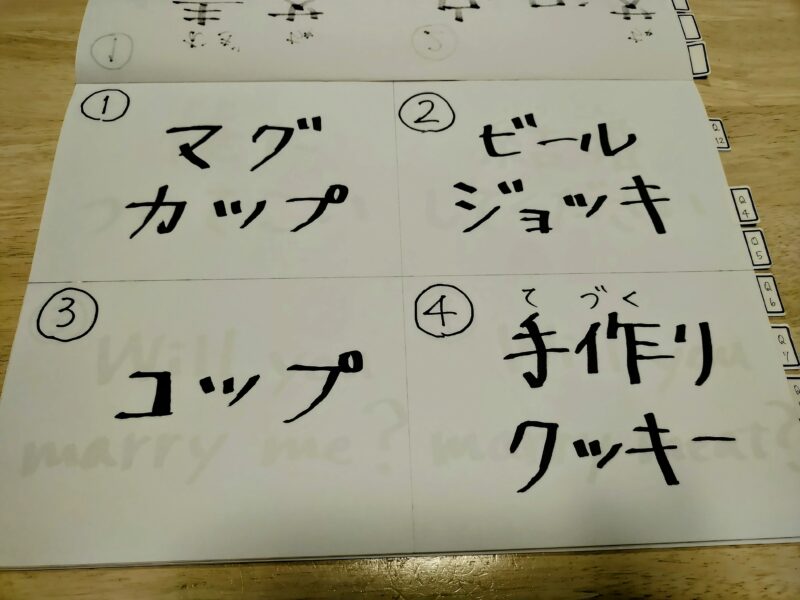 ①
マグ
カップ
②
ビール
ジョッキ
③
コップ
④
てづく
手作り
クッキー
Q
12
Q
4
Q
5
Q
6
Q
7
Will you
marry me?